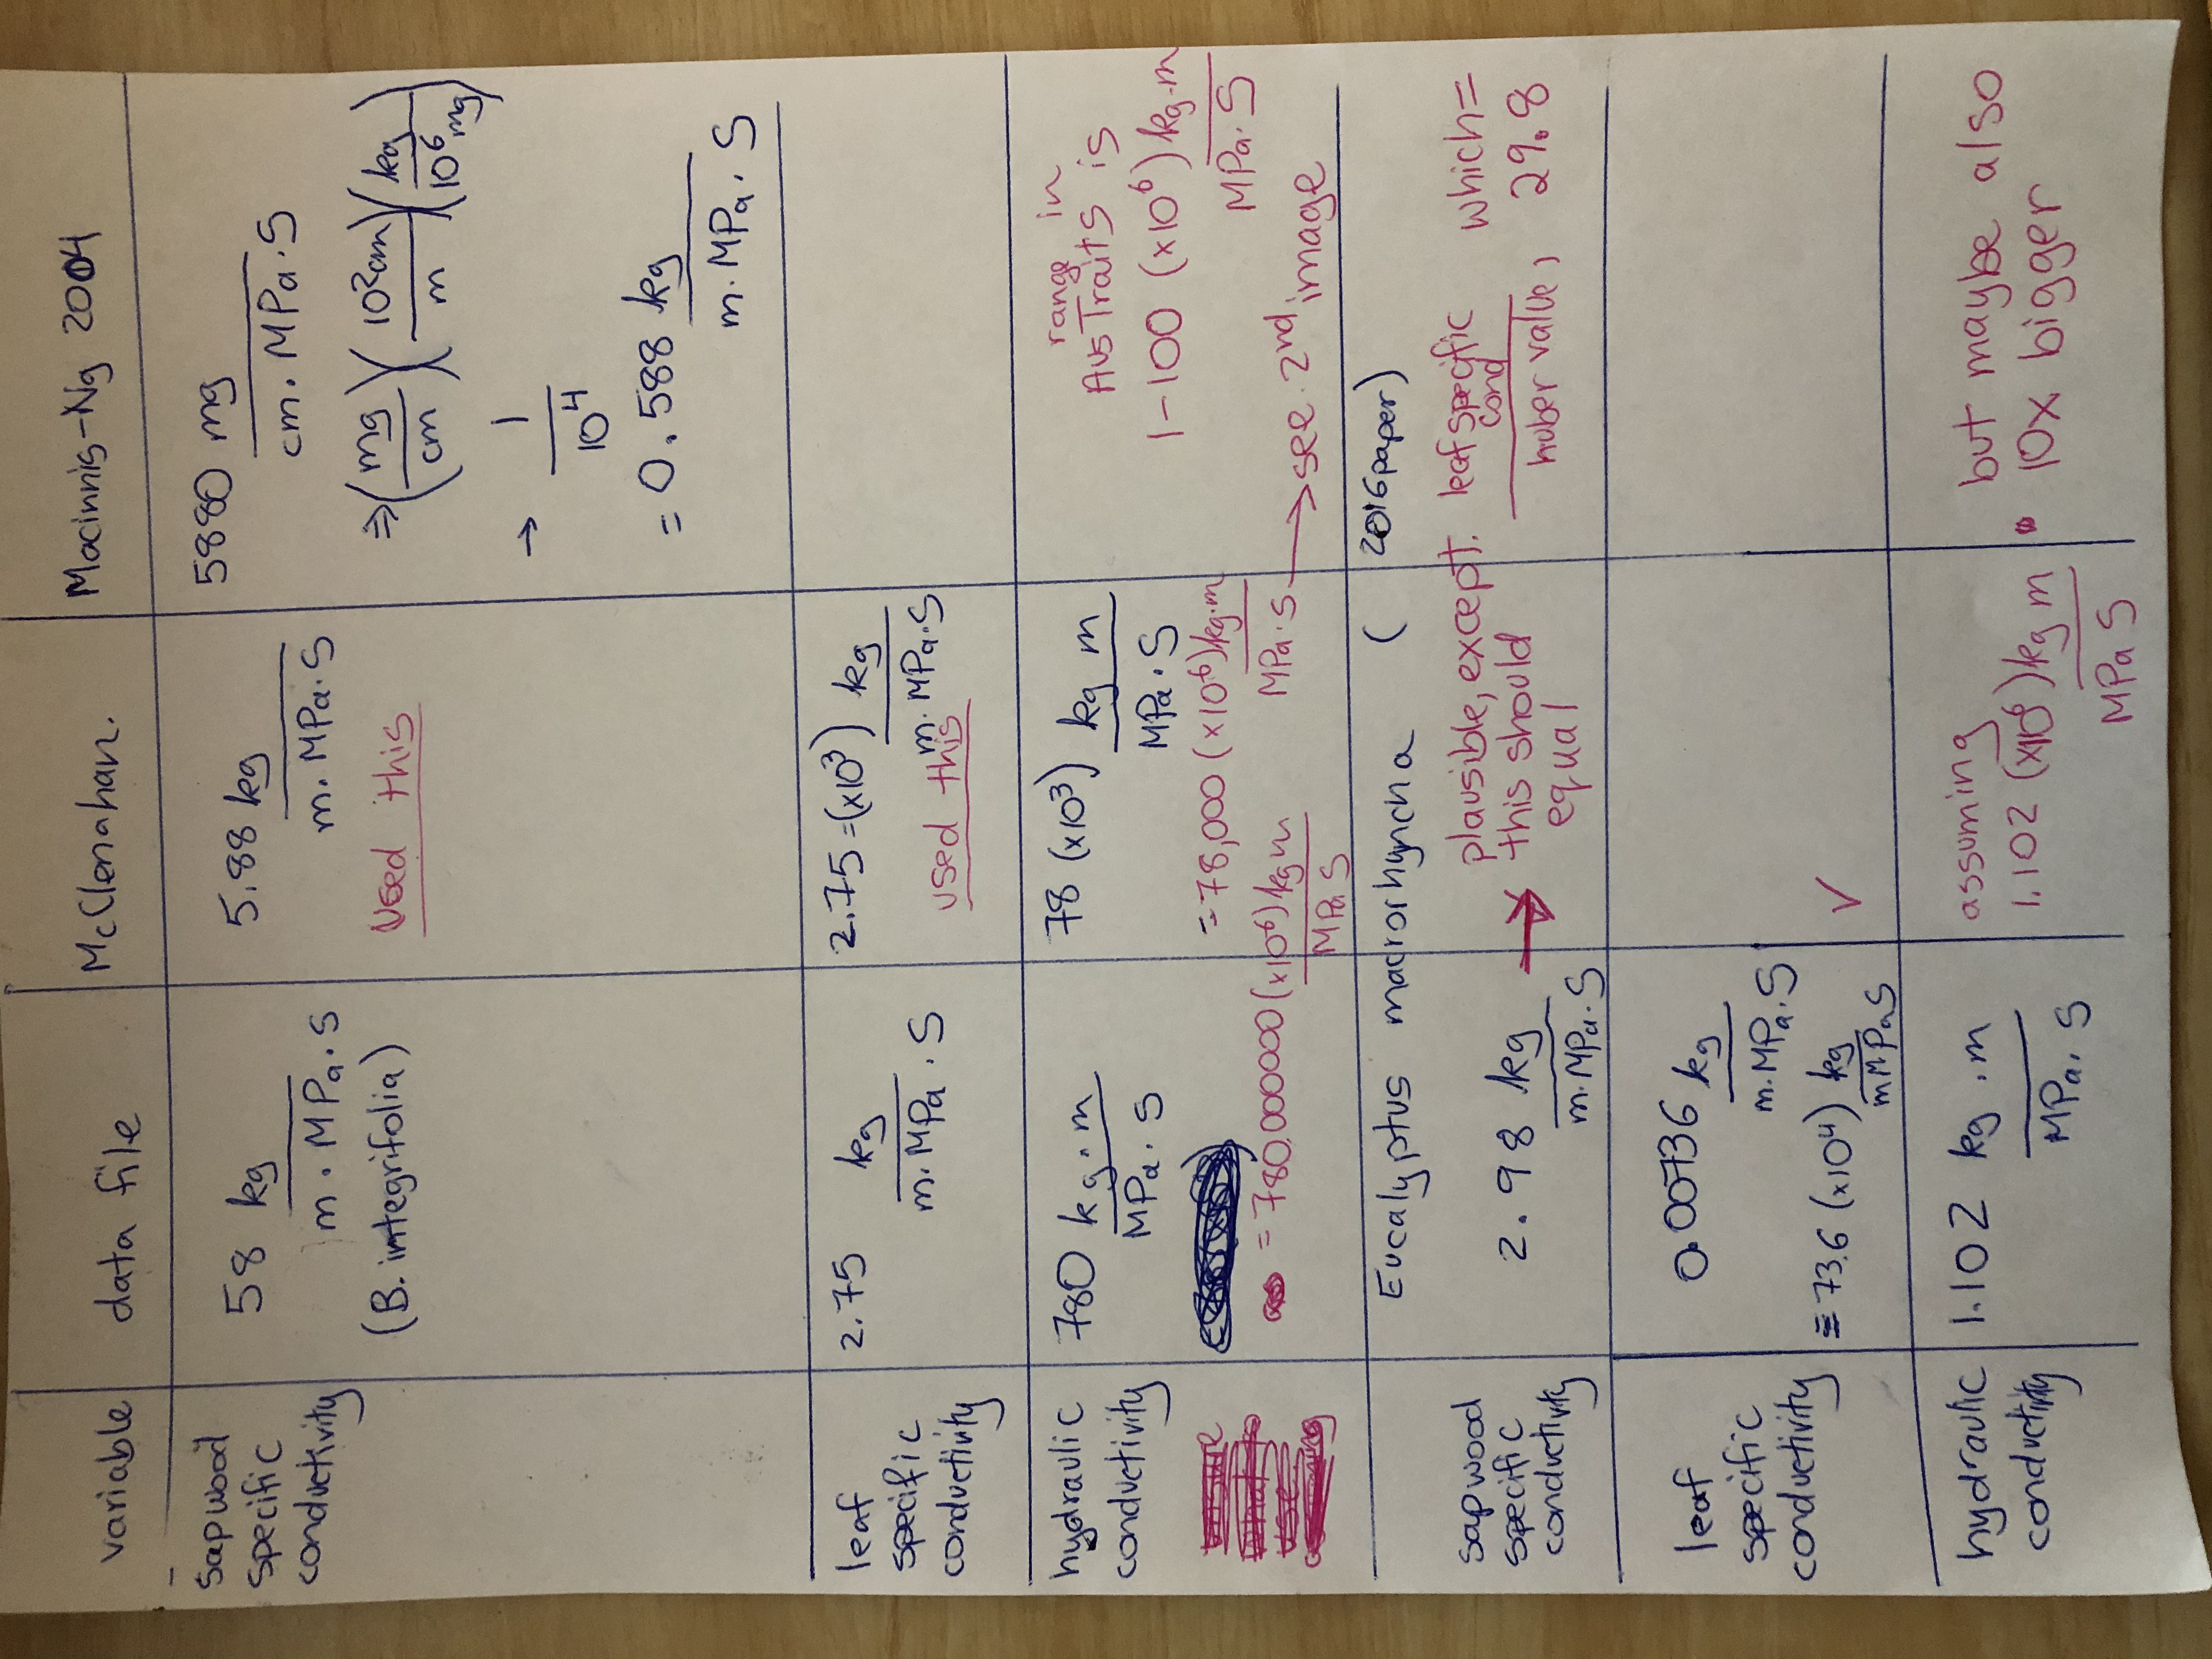 variable
data file
McClenahan.
Macinnis-Ng 2004
sapwood
specific
conductivity
58 kg
m . MPa . S
(B. integrifolia)
5.88 kg
m. MPa. S
Used this
5880 mg
cm. MPa . S
⇒ (mg/cm)(10²cm/m)(kg/10⁶mg)
→ 1/10⁴
= 0.588 kg
m. MPa. S
leaf
specific
conductivity
2.75 kg
m. MPa . S
2.75 =(x10³) kg
m. MPa.S
used this
hydraulic
conductivity
780 kg.m
MPa. S
= 780.000000 (x10⁻⁶) kg m
MPa S
78 (x10³) kg m
MPa . S
= 78,000 (x10⁻⁶) kg.m
MPa . S → see 2nd image
range in
AusTraits is
1-100 (x10⁶) kg.m
MPa. S
Eucalyptus macrorhyncha (2016 paper)
sapwood
specific
conductivity
2.98 kg
m. MPa. S
→ plausible, except.
this should
equal
leaf specific
cond
huber value,
which=
29.8
leaf
specific
conductivity
0.00736 kg
m. MPa. S
≡ 73.6 (x10⁴) kg
m MPa S
✓
hydraulic
conductivity
1.102 kg . m
MPa. S
assuming
1.102 (x10⁶) kg m
MPa S
but maybe also
10x bigger